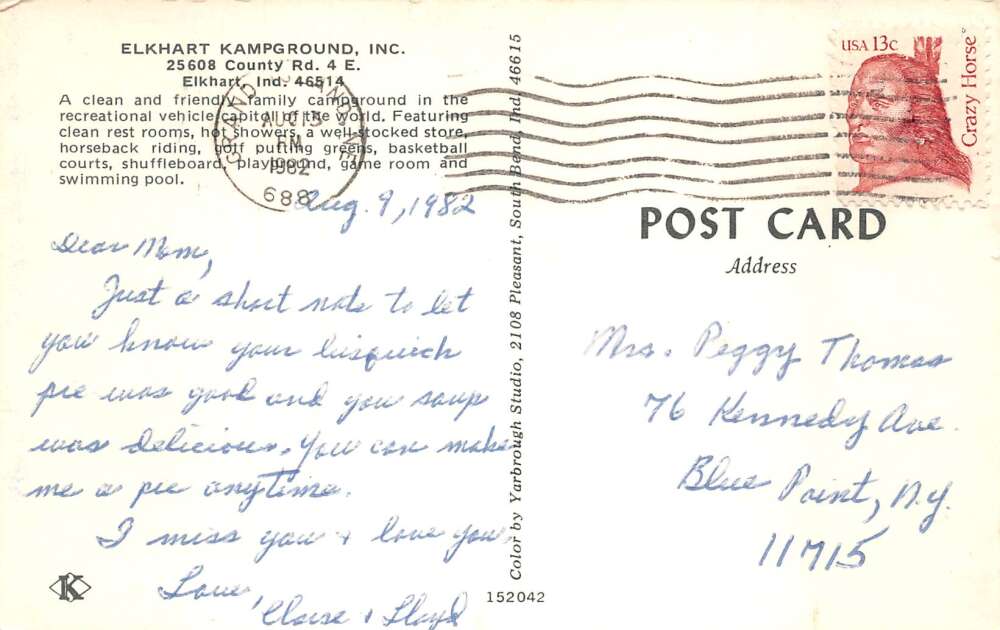 ELKHART KAMPGROUND, INC.
25608 County Rd. 4 E.
Elkhart, Ind. 46514
A clean and friendly family campground in the
recreational vehicle capitol of the world. Featuring
clean rest rooms, hot showers, a well stocked store,
horseback riding, golf putting greens, basketball
courts, shuffleboard, playground, game room and
swimming pool.
GRAND ISLAND, NE
AUG 13
PM
1982
688
Aug. 9, 1982
Dear Mom,
Just a short note to let
you know your bisquick
pie was good and you soup
was delicious. You can make
me a pie anytime.
I miss you + love you.
Love,
+ Lloyd
K
Color by Yarbrough Studio, 2108 Pleasant, South Bend, Ind. 46615
152042
USA 13c
Crazy Horse
POST CARD
Address
Mrs. Peggy Thomas
76 Kennedy Ave.
Blue Point, N.Y.
11715